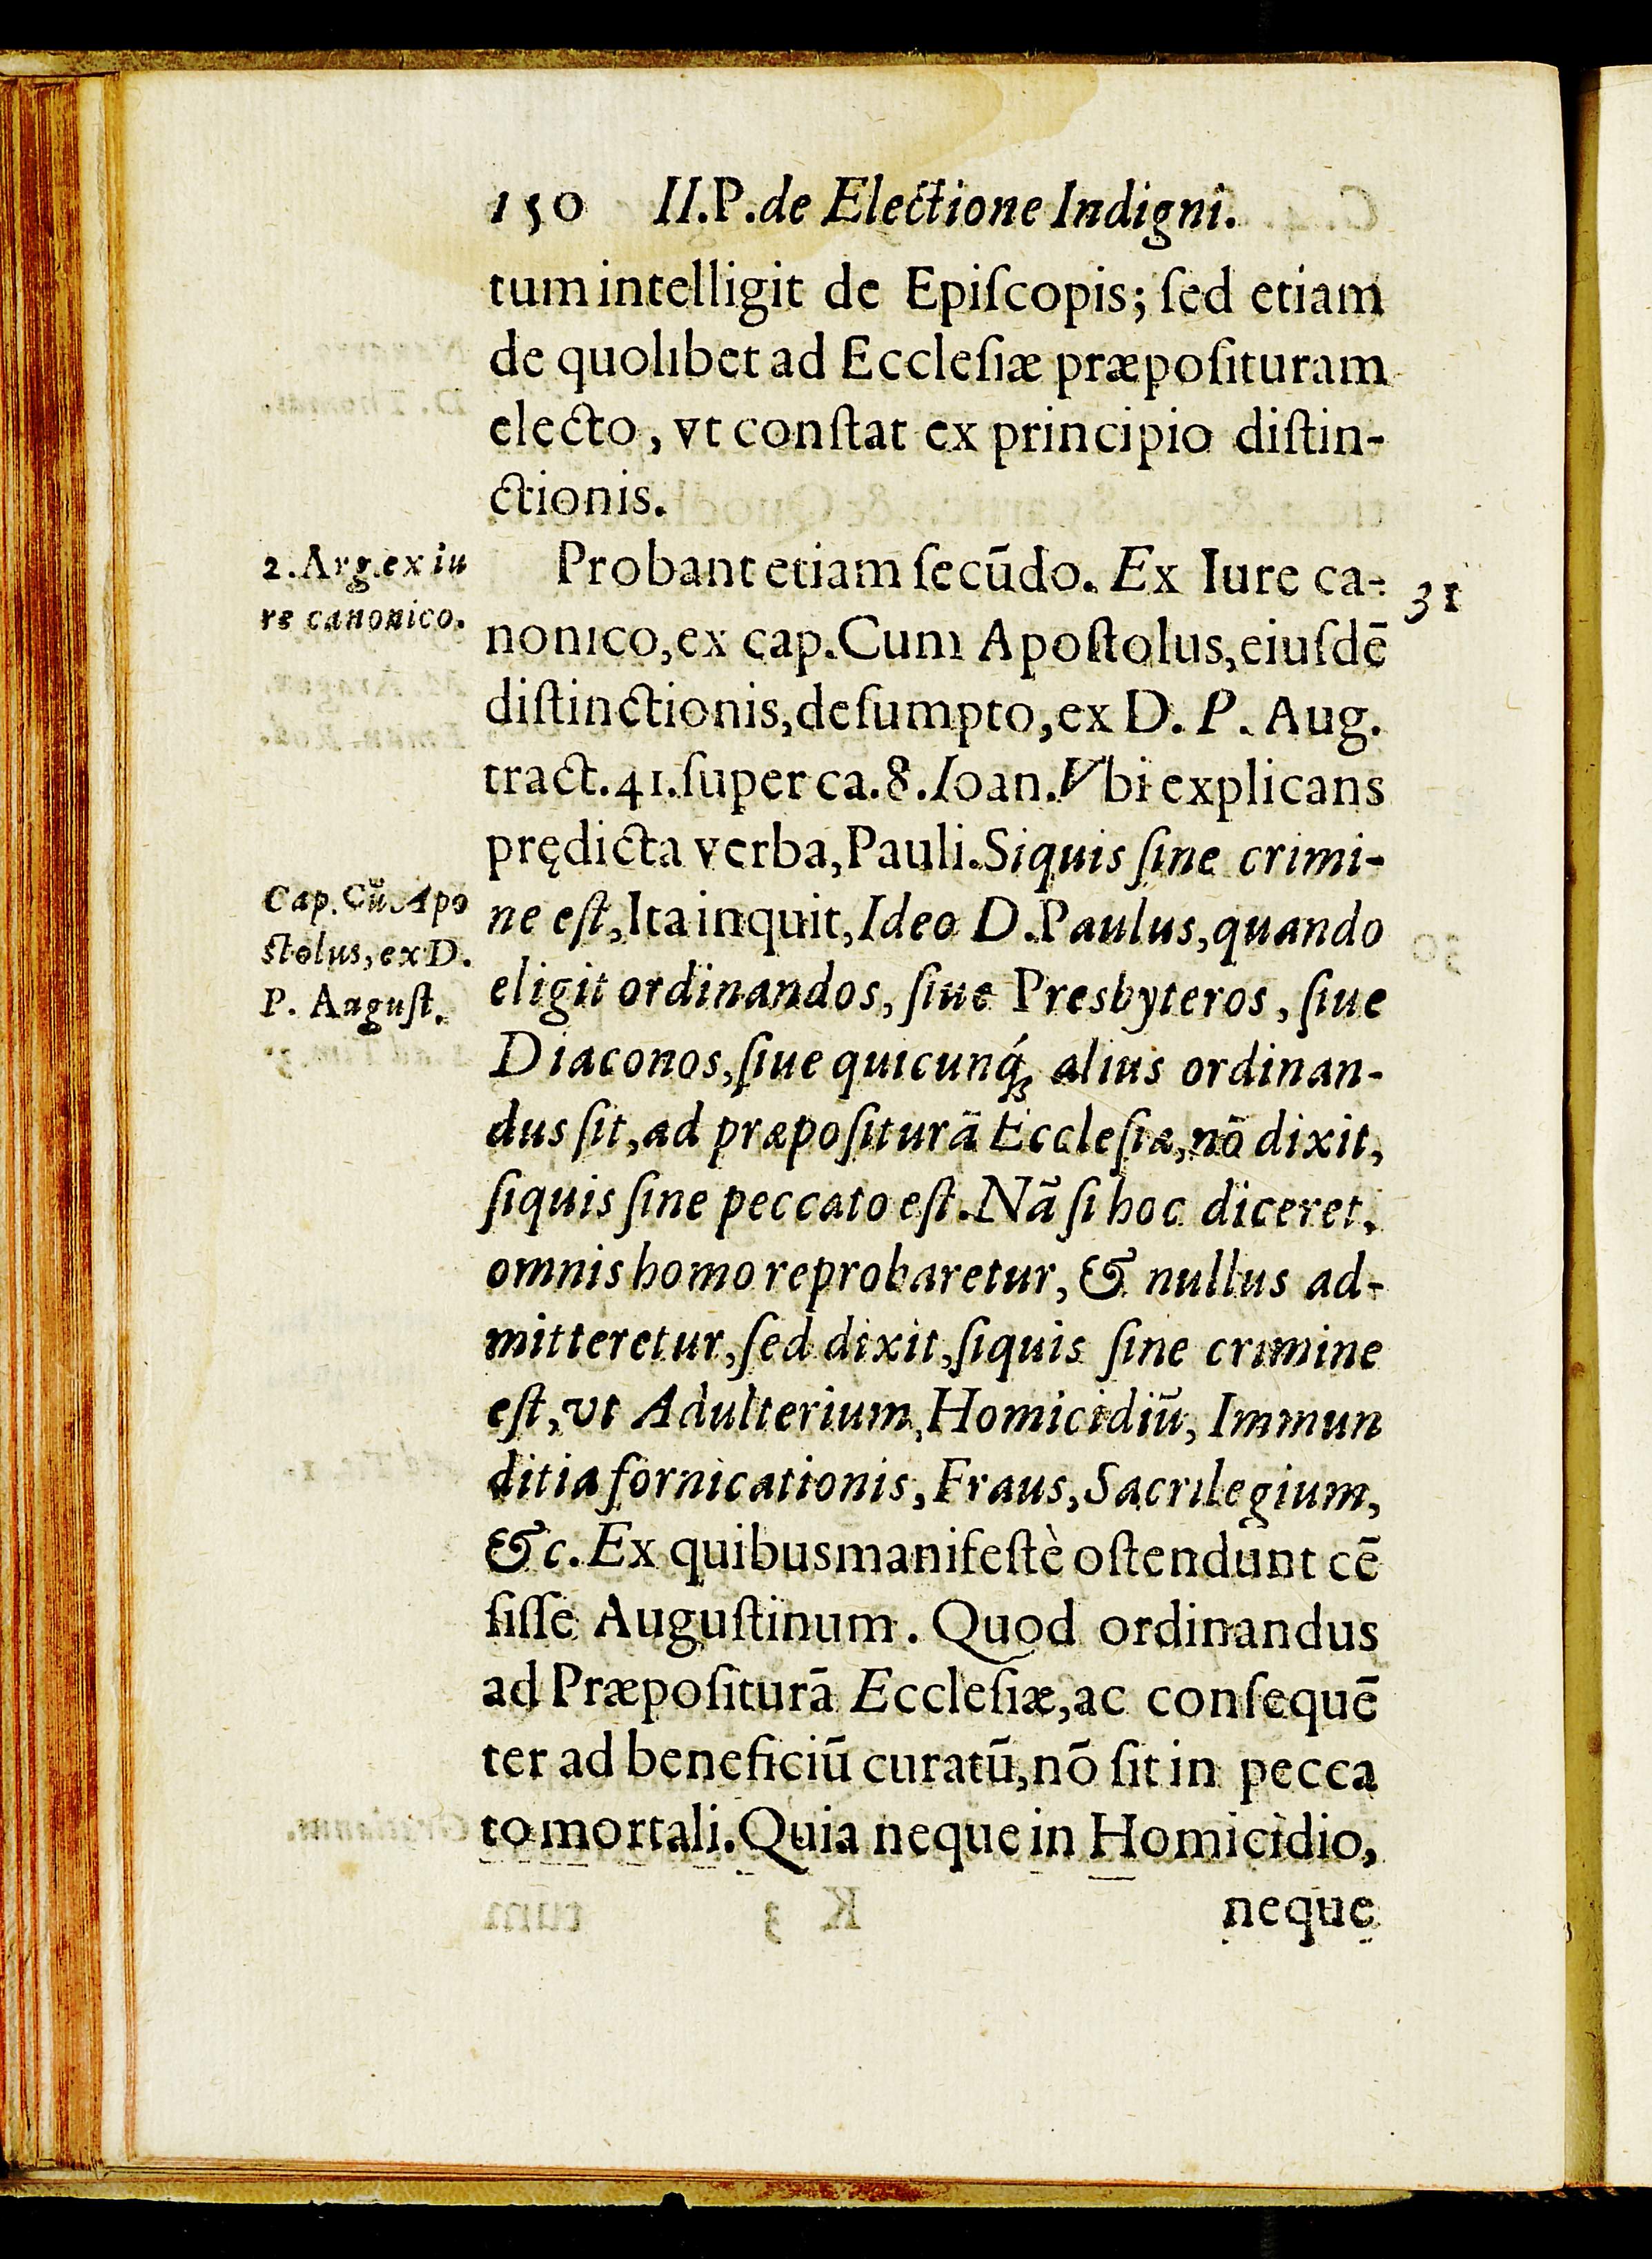 150 II.P.de Electione Indigni.
tum intelligit de Epiſcopis; ſed etiam
de quolibet ad Eccleſiæ præpoſituram
electo, vt conſtat ex principio diſtin-
ctionis.
2. Arg.ex iu
re canonico.
Probant etiam ſecūdo. Ex Iure ca-
31
nonico, ex cap. Cum Apoſtolus, eiuſdē
diſtinctionis, deſumpto, ex D. P. Aug.
tract. 41. ſuper ca. 8. Ioan. Vbi explicans
prędicta verba, Pauli. Siquis ſine crimi-
Cap. Cū Apo
ſtolus, ex D.
P. Auguſt.
ne eſt, Ita inquit, Ideo D. Paulus, quando
eligit ordinandos, ſiue Presbyteros, ſiue
Diaconos, ſiue quicunq́ꝫ alius ordinan-
dus ſit, ad præpoſiturā Eccleſiæ, nō dixit,
ſiquis ſine peccato eſt. Nā ſi hoc diceret,
omnis homo reprobaretur, & nullus ad-
mitteretur, ſed dixit, ſiquis ſine crimine
eſt, vt Adulterium, Homicidiū, Immun
ditia fornicationis, Fraus, Sacrilegium,
&c. Ex quibus manifeſtè oſtendunt cē
ſiſſe Auguſtinum. Quod ordinandus
ad Præpoſiturā Eccleſiæ, ac conſequē
ter ad beneficiū curatū, nō ſit in pecca
to mortali. Quia neque in Homicidio,
neque